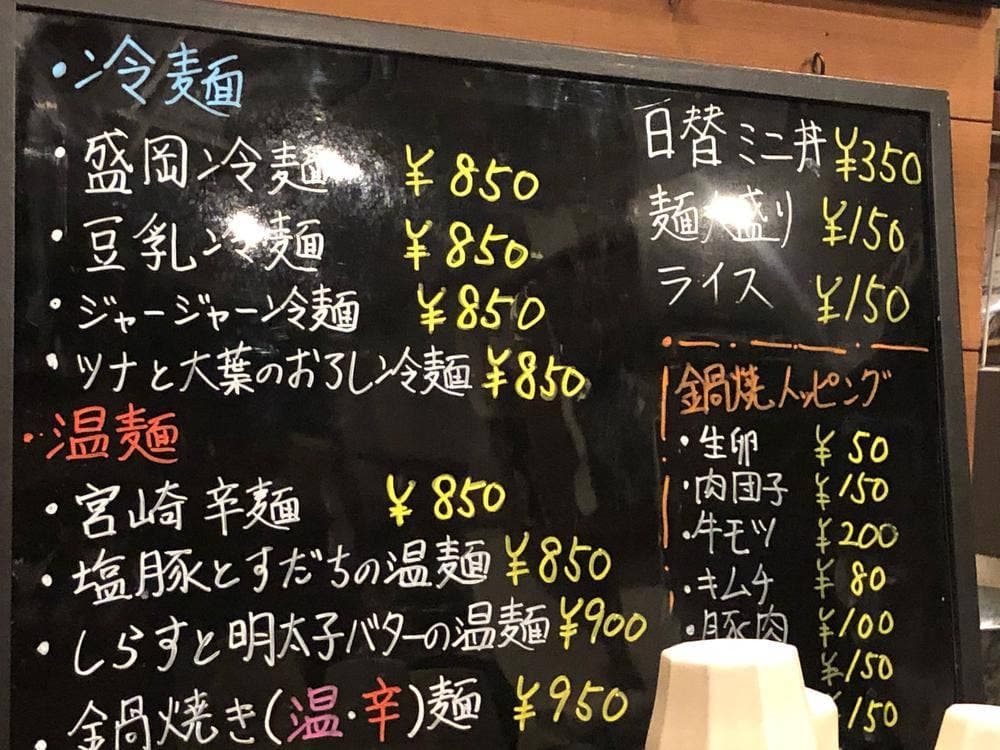 ・冷麺
・盛岡冷麺 ¥850
・豆乳冷麺 ¥850
・ジャージャー冷麺 ¥850
・ツナと大葉のおろし冷麺 ¥850
・温麺
・宮崎辛麺 ¥850
・塩豚とすだちの温麺 ¥850
・しらすと明太子バターの温麺 ¥900
・金鍋焼き(温・辛)麺 ¥950
日替ミニ丼 ¥350
麺大盛り ¥150
ライス ¥150
鍋焼トッピング
・生卵 ¥50
・肉団子 ¥150
・牛モツ ¥200
・キムチ ¥80
・豚肉 ¥100
¥150
¥150